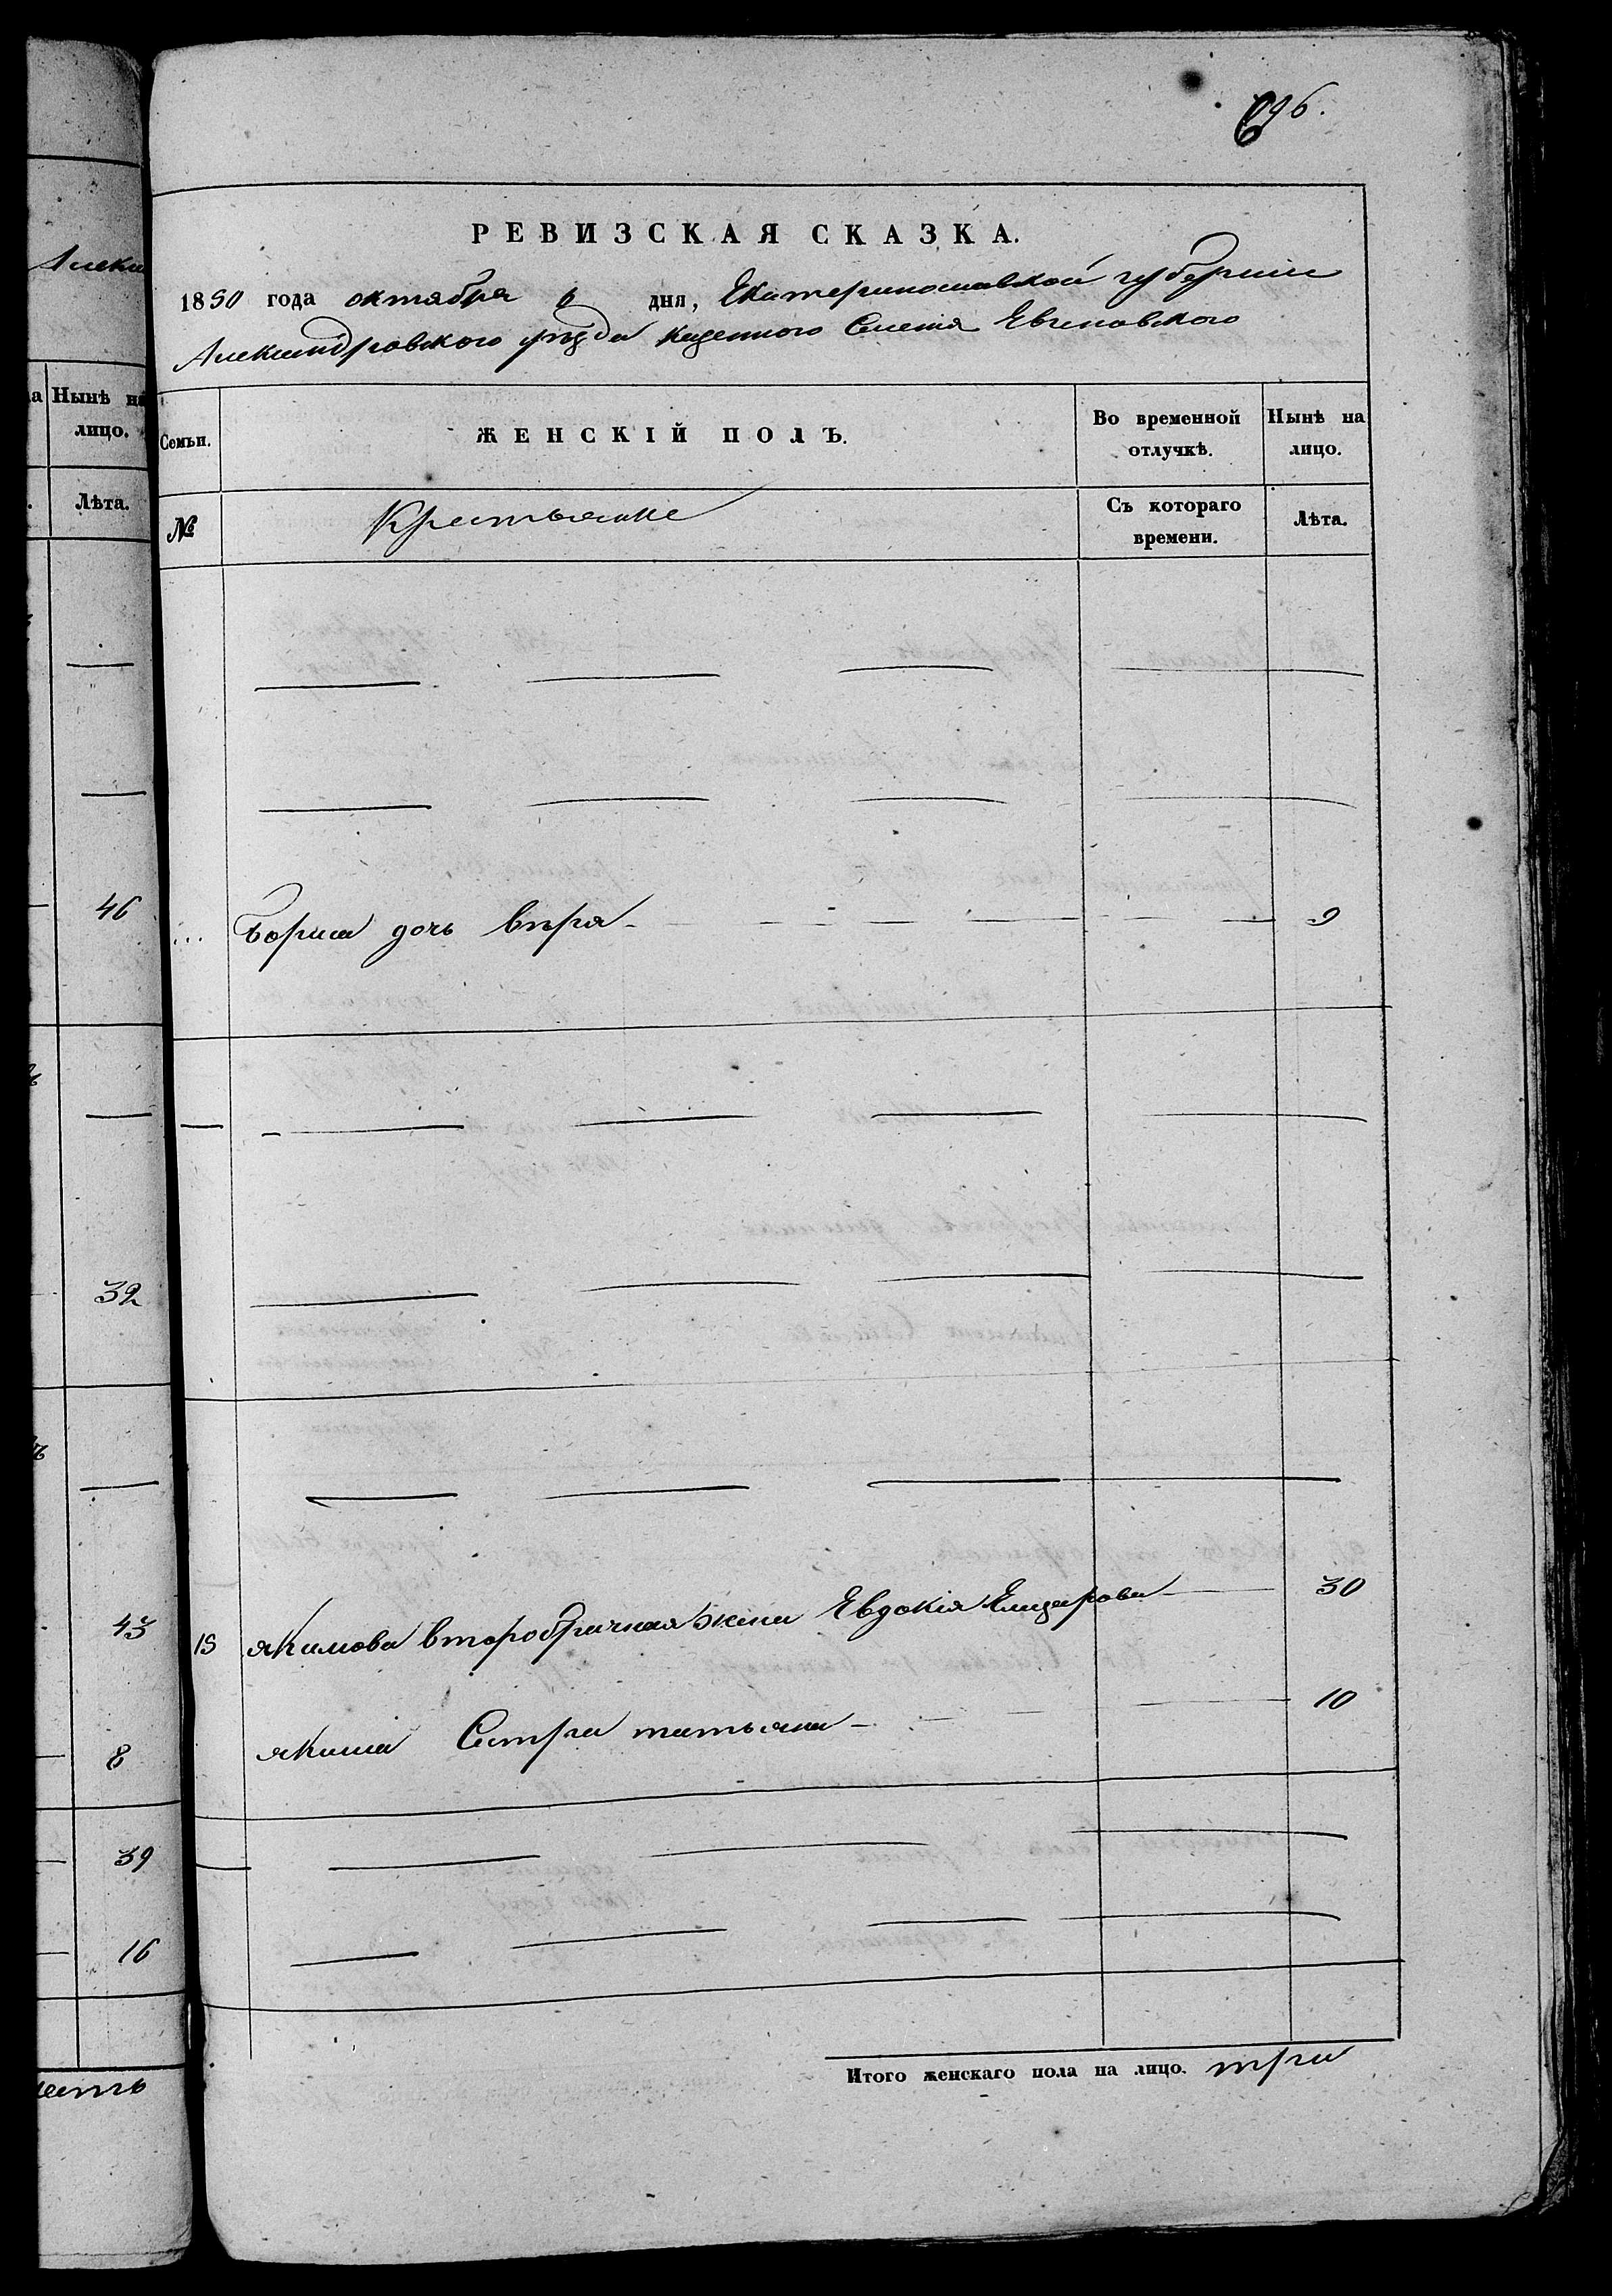 696.
РЕВИЗСКАЯ СКАЗКА.
1850 года октября 6 дня, Екатеринославской губернии
Александровского уѣзда казенного Селения
Семьи.
ЖЕНСКІЙ ПОЛЪ.
Во временной отлучкѣ.
Нынѣ на лицо.
№
Крестьянке
Съ котораго времени.
Лѣта.
Бориса дочь вѣра 9
15 якимова второбрачная жена Евдокія Елизарова 30
якима Сестра татьяна 10
Итого женскаго пола на лицо. три
Алекса
Нынѣ на
лицо.
Лѣта.
46
32
43
8
39
16